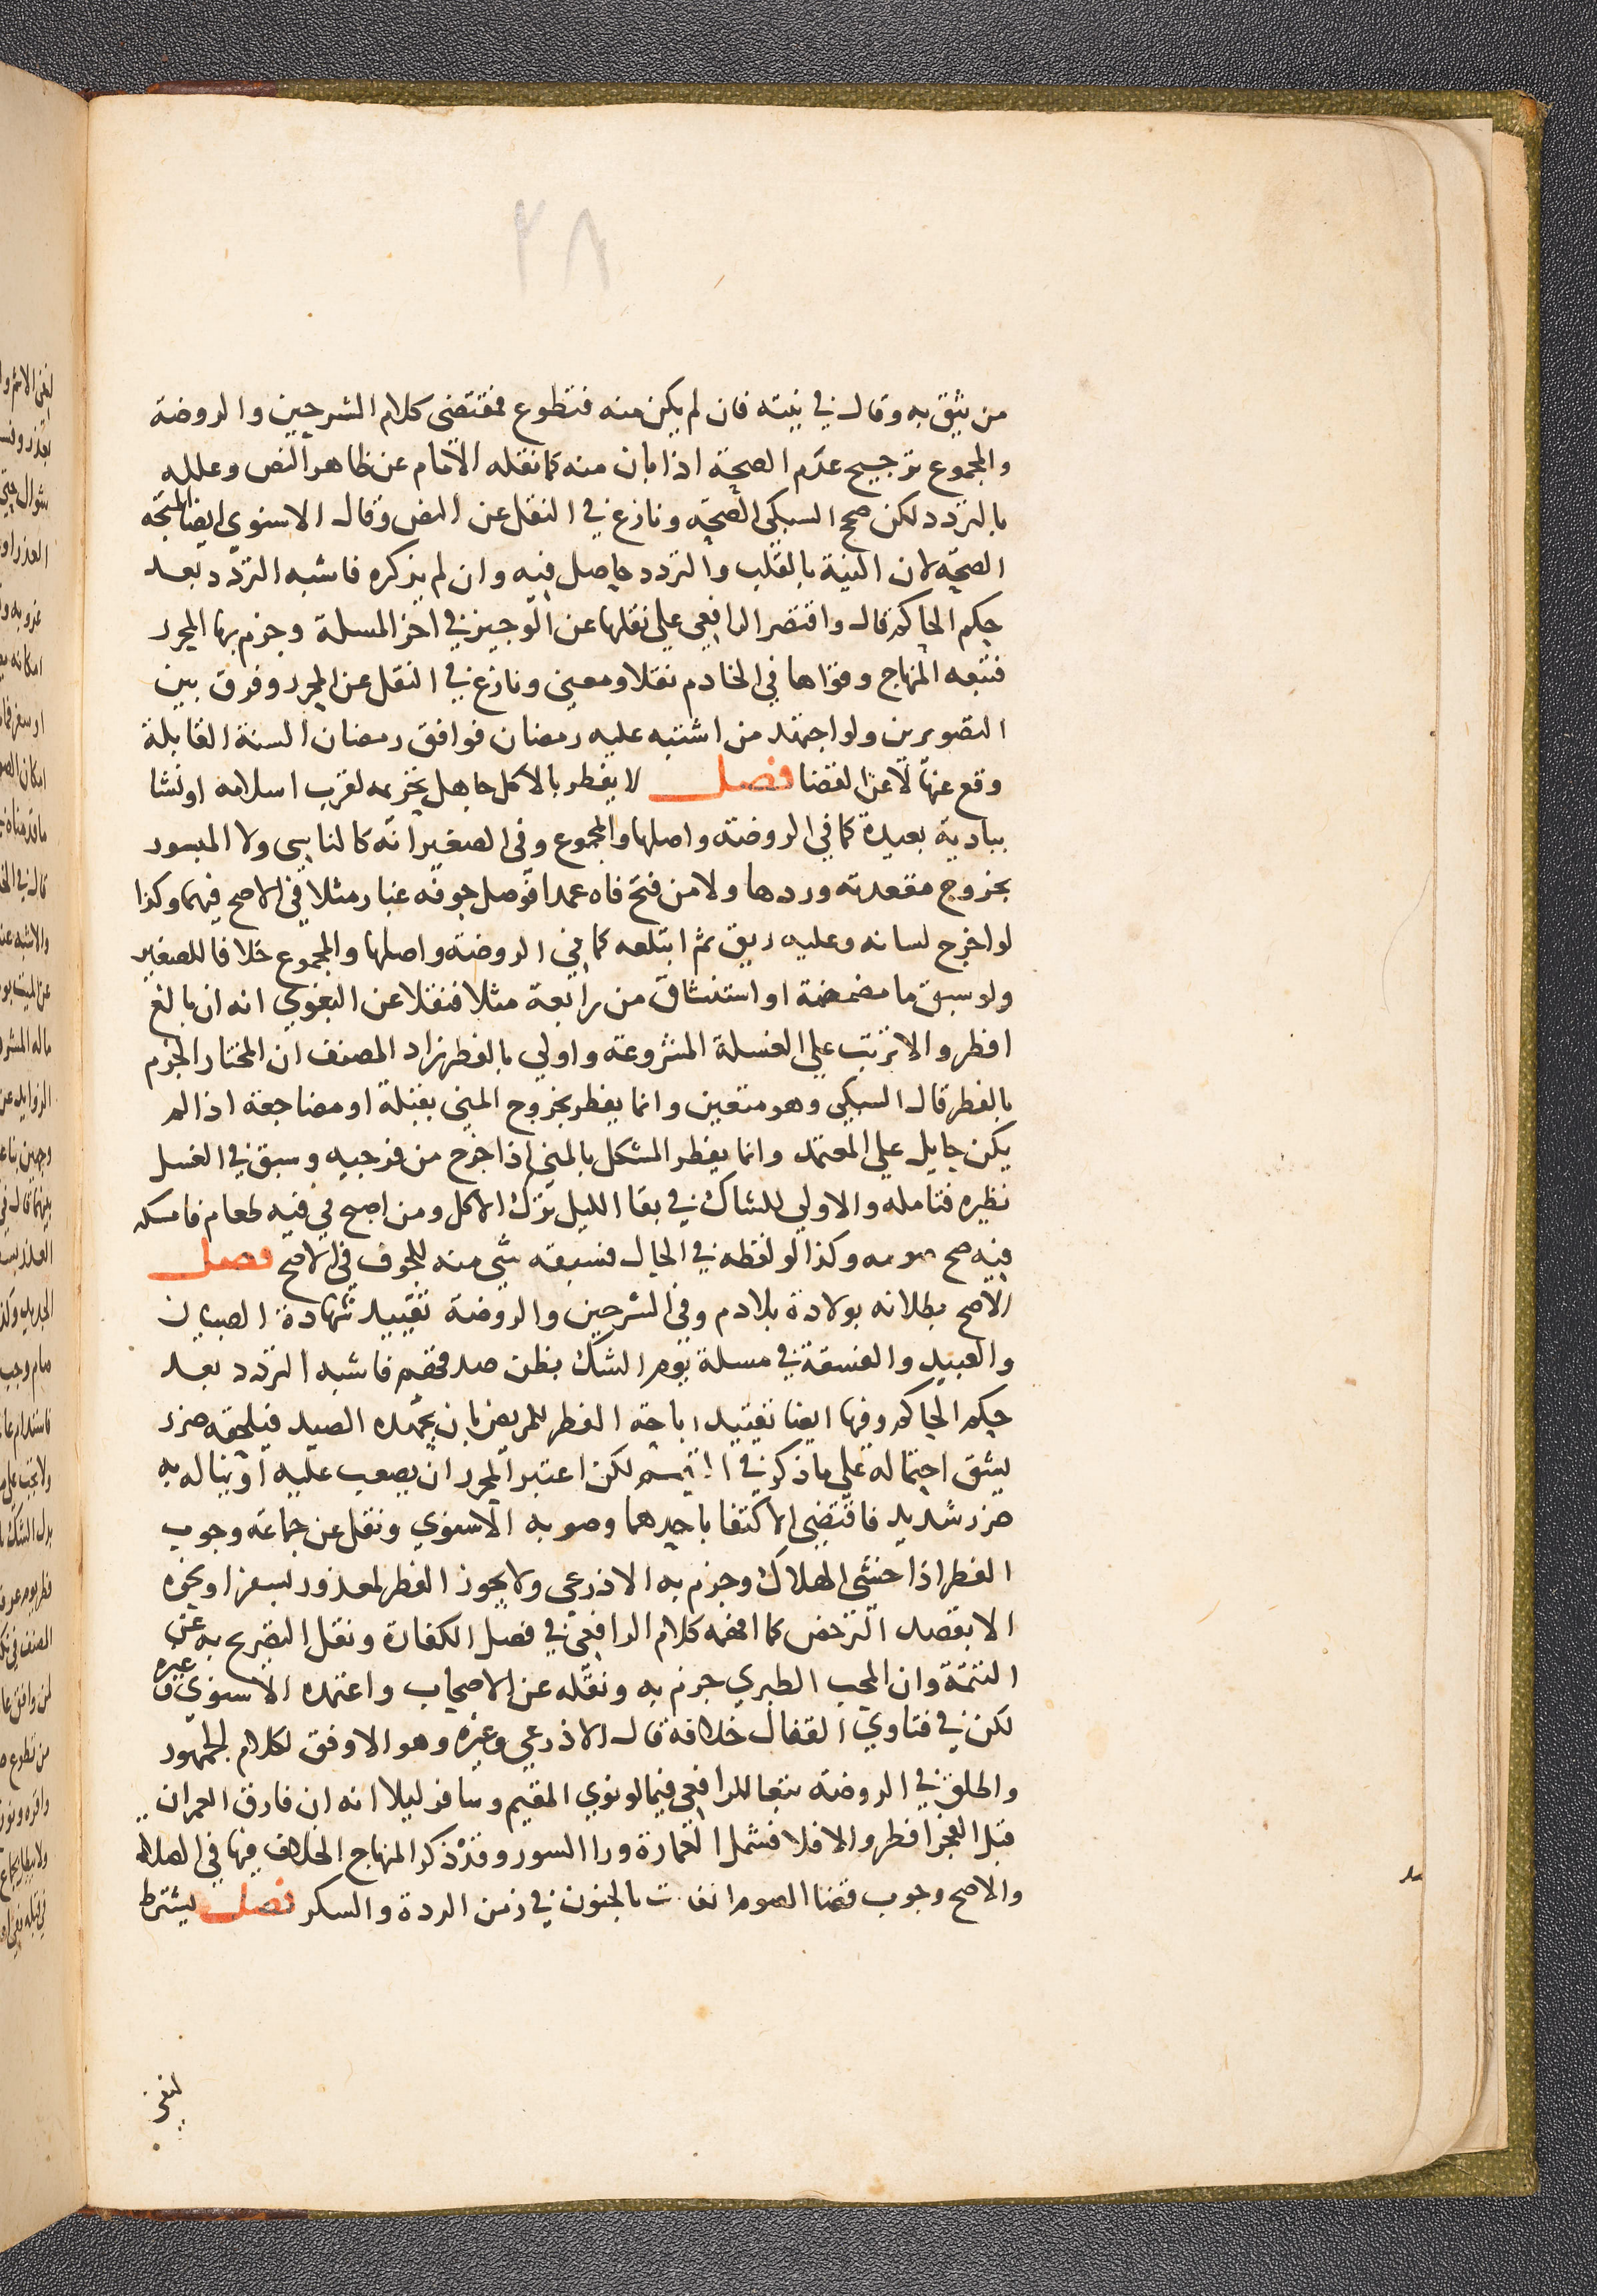 ٢٨
من يثق به وقال في نيته فان لم يكن منه فتطوع فمقتضى كلام الشرحين والروضة
والمجموع ترجيح عدم الصحة اذا بان منه كما نقله الامام عن ظاهر النص وعلله
بالتردد لكن صحح السبكي الصحة ونازع في النقل عن النص وقال الاسنوي ايضا المتجه
الصحة لان النية بالقلب والتردد حاصل فيه وان لم يذكره فاشبه التردد بعد
حكم الحاكم قال واقتصر الرافعي على نقلها عن الوجيز في اخر المسلة وجزم بها المحرر
فتبعه المنهاج وقواها في الخادم نقلا ومعنى ونازع في النقل عن المحرر وفرق بين
التصويرين ولو اجتهد من اشتبه عليه رمضان فوافق رمضان السنة القابلة
وقع عنها لا عن القضا فصل لا يفطر بالاكل جاهل بتحريمه لقرب اسلامه او نشا
ببادية بعيدة كما في الروضة واصلها والمجموع وفى الصغير انه كالناسي ولا المبسور
بخروج مقعدته وردها ولا من فتح فاه عمدا فوصل جوفه غبار مثلا في الاصح فيهما وكذا
لو اخرج لسانه وعليه ريق ثم ابتلعه كما في الروضة واصلها والمجموع خلافا للصغير
ولو سبق ما مضمضة او استنشاق من رابعة مثلا فنقلا عن البغوي انه ان بالغ
افطر والا ترتب على الغسلة المشروعة واولى بالفطر زاد المصنف ان المختار الجزم
بالفطر قال السبكي وهو متعين وانما يفطر بخروج المني بقبلة او مضاجعة اذا لم
يكن حايل على المعتمد وانما يفطر المشكل بالمني اذا خرج من فرجيه وسبق في الغسل
نظيره فتامله والاولى للشاك في بقا الليل ترك الاكل ومن اصبح في فيه طعام فامسكه
فيه صح صومه وكذا لو لفظه في الحال فسبقه شي منه للجوف في الاصح فصل
الاصح بطلانه بولادة بلا دم وفى الشرحين والروضة تقييد شهادة الصبيان
والعبيد والفسقة في مسلة يوم الشك بظن صدقهم فاشبه التردد بعد
حكم الحاكم وفيها ايضا تقييد اباحة الفطر للمريض بان يجهده الصيد فيلحقه ضرر
يشق احتماله على ما ذكر في التيمم لكن اعتبر المحرر ان يصعب عليه او يناله به
ضرر شديد فاقتضى الاكتفا باحدهما وصوبه الاسنوي ونقل عن جماعة وجوب
الفطر اذا خشى الهلاك وجزم به الاذرعي ولا يجوز الفطر لمعذور لسفر او نحوه
الا بقصد الترخص كما افهمه كلام الرافعي في فصل الكفارة ونقل التصريح به عن
التتمة وان المحب الطبري جزم به ونقله عن الاصحاب واعتمده الاسنوي وغيره
لكن في فتاوي القفال خلافه قال الاذرعي وغيره وهو الاوفق لكلام الجمهور
واطلق في الروضة تبعا للرافعي فيما لو نوى المقيم وسافر ليلا انه ان فارق العمران
قبل الفجر افطر والا فلا فشمل العمارة ورا السور وقد ذكر المنهاج الخلاف فيها في الصلاة
والاصح وجوب قضا الصوم الفايت بالجنون في زمن الردة والسكر فصل يشترط
لنفى